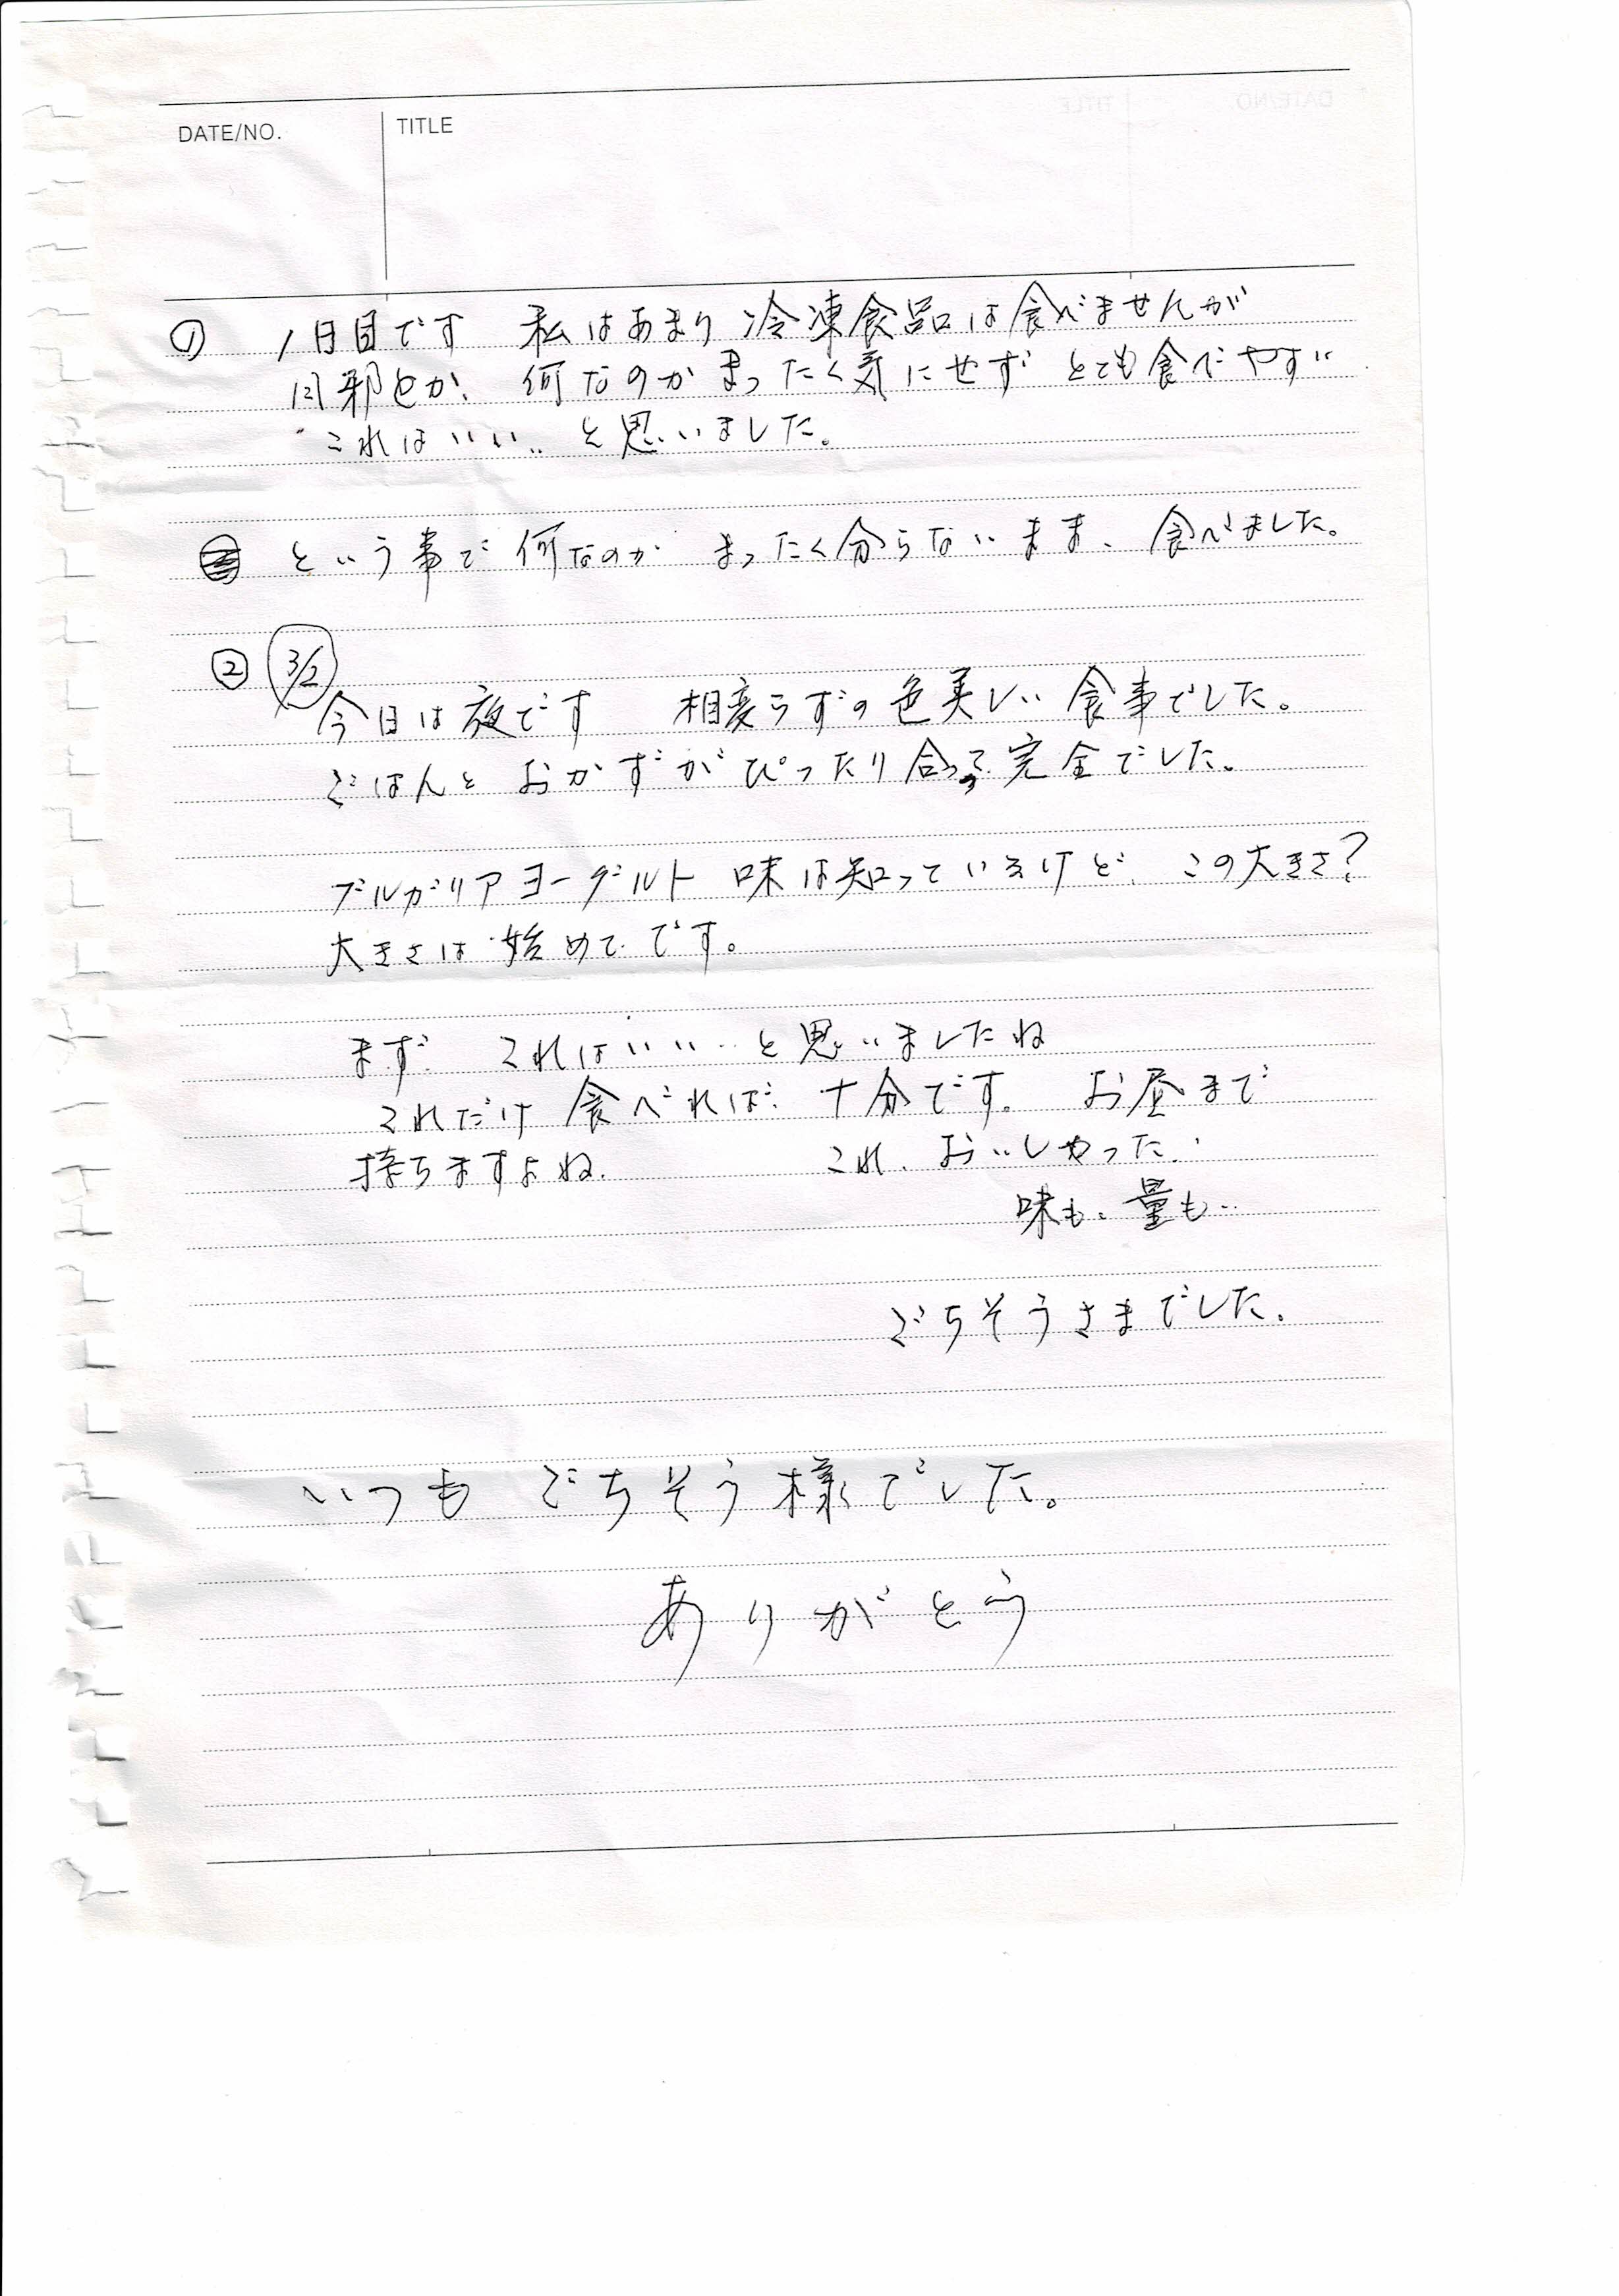 DATE/NO. TITLE
① 1日目です 私はあまり冷凍食品は食べませんが
何なのかまったく気にせず とても食べやすい
これはいい‥と思いました。
という事で何なのか まったく分らないまま、食べました。
② 3/2
今日は夜です 相変らずの色美しい食事でした。
ごはんと おかずがぴったり合って完全でした。
ブルガリアヨーグルト 味は知っているけど、この大きさ?
大きさは始めてです。
まず これはいい‥と思いましたね
これだけ食べれば十分です。 お昼まで
持ちますよね、 これ、おいしかった‥
味も、量も‥
ごちそうさまでした。
いつも ごちそう様でした。
ありがとう